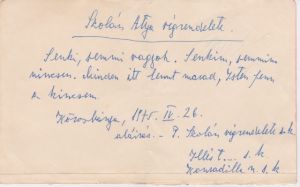 Skolán Atya végrendelete.
Senki, semmi vagyok. Senkim, semmim
nincsen. Minden itt lennt marad, Isten fenn
a kincsem.
1975. IV. 26.
aláírás - P. Skolán végrendelete s.k.
s.k.
s.k.